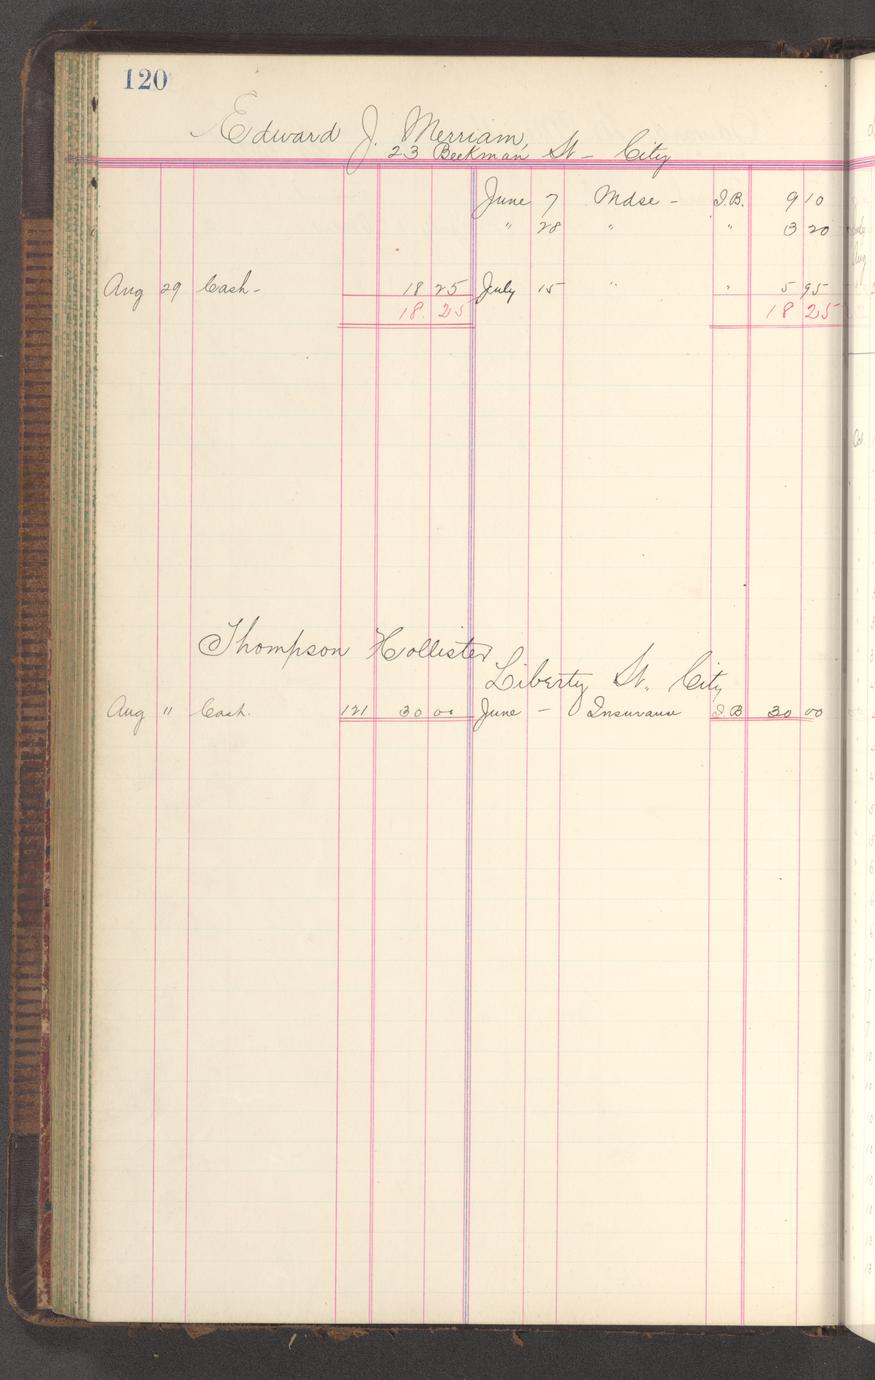 120
Edward J. Merriam,
23 Beekman St - City
June 7 Mdse - I.B. 9 10
" 28 " " 3 20
Aug 29 Cash - 18 25 July 15 " " 5 95
18 25 18 25
Thompson Hollister
Liberty St. City
Aug " Cash. 121 30 00 June - Insurance I B 30 00